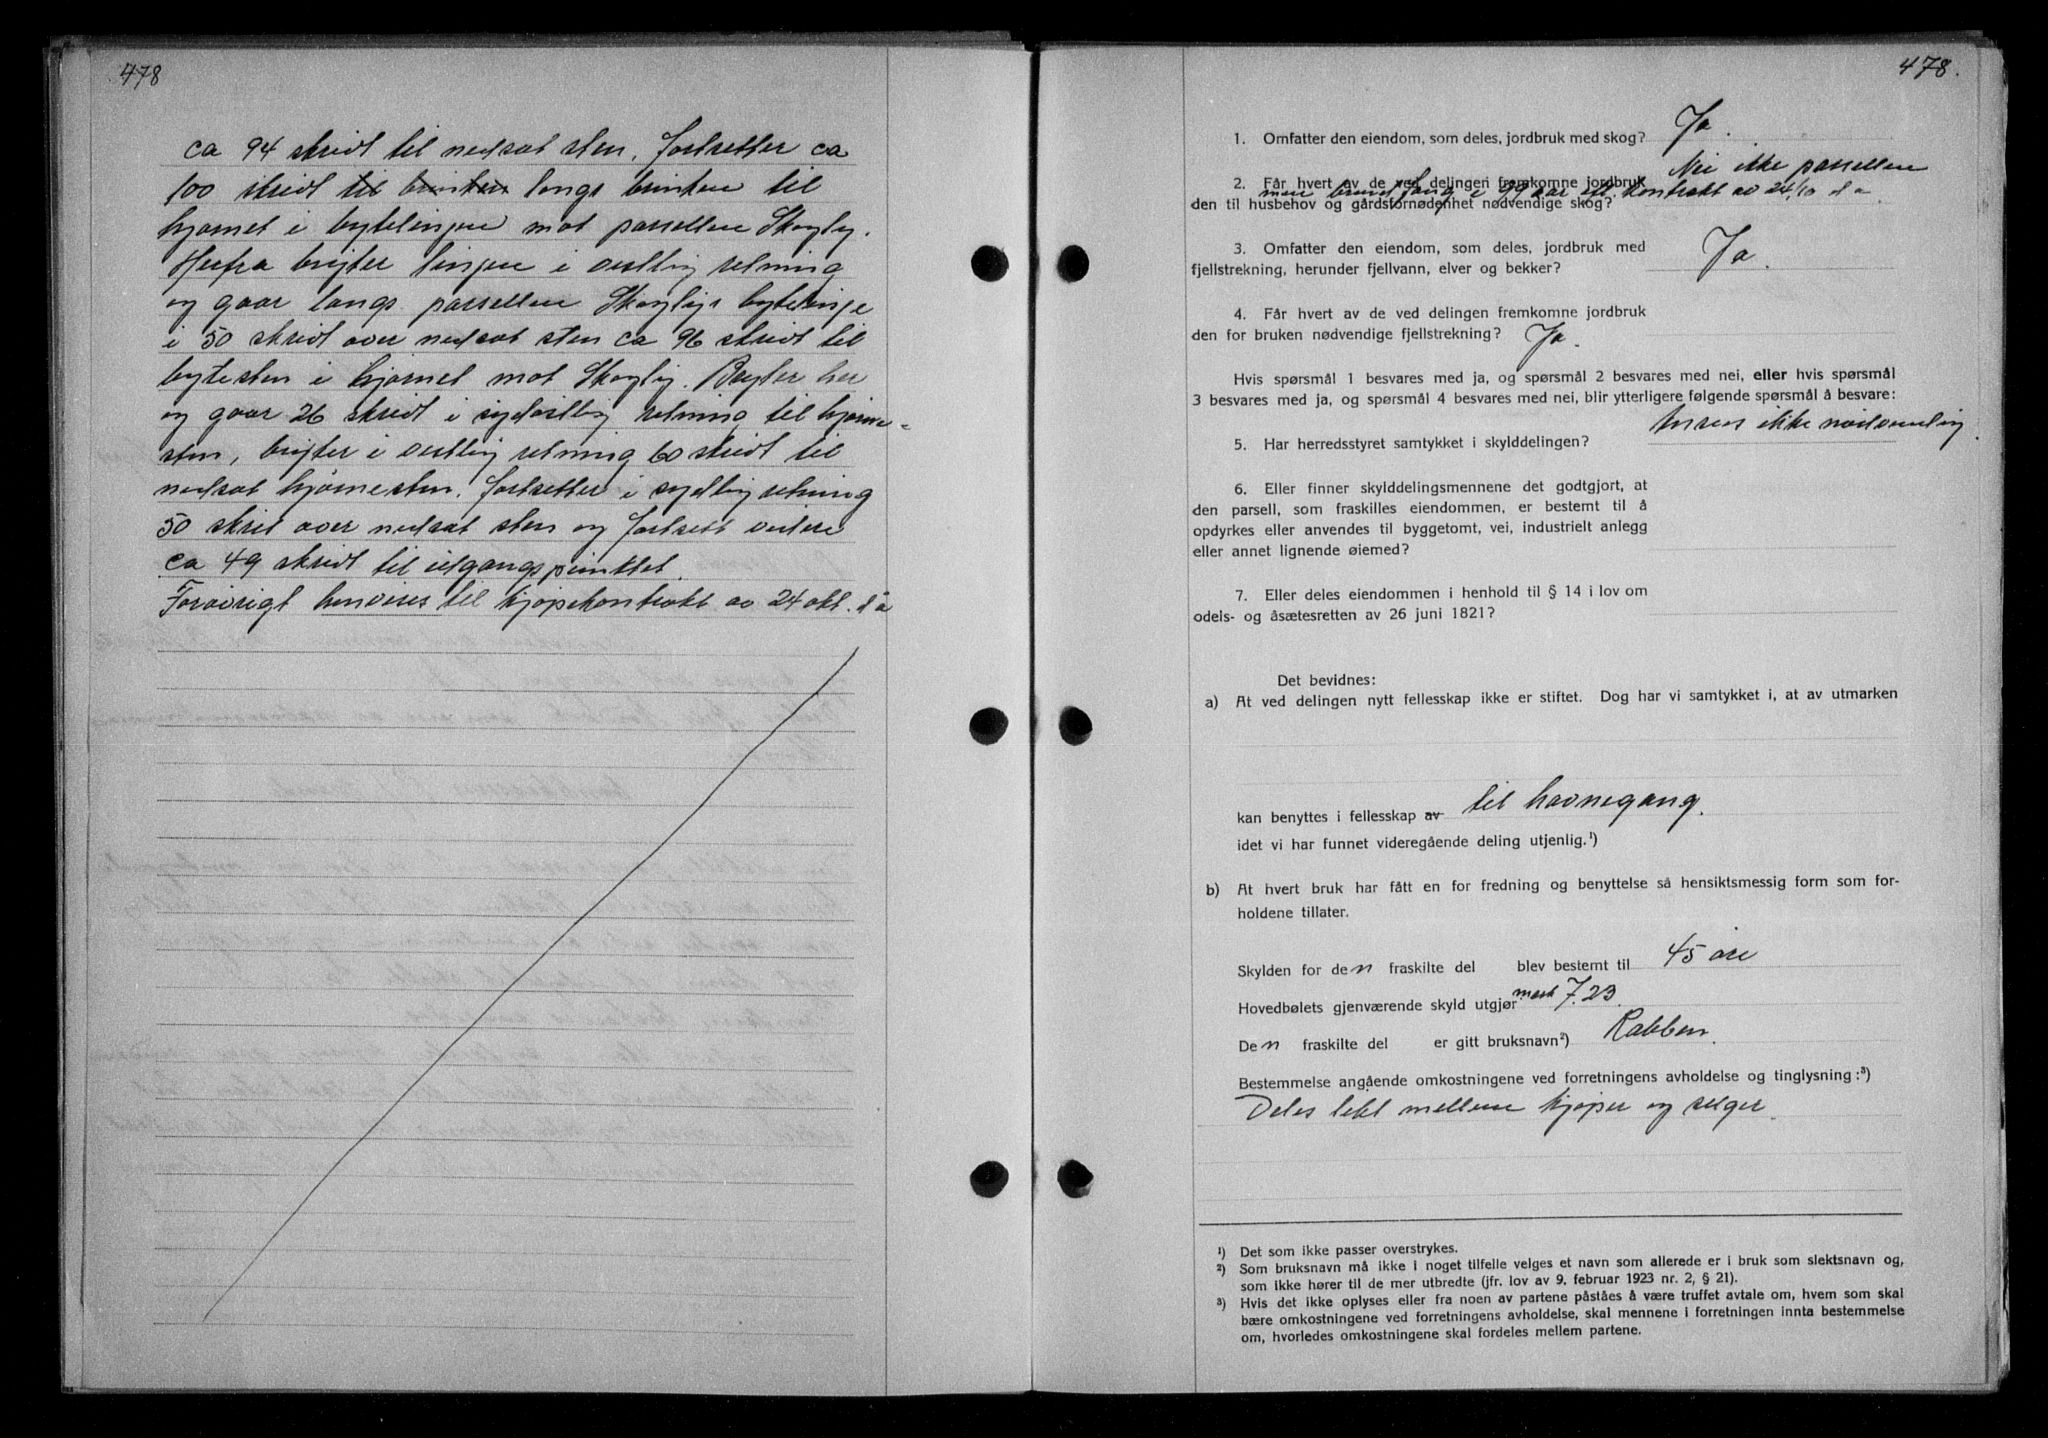 478
ca 94 skridt til nedsat sten, fortsetter ca
100 skridt til brinken langs brinken til
hjørnet i bytelinjen mot parsellen Skogly.
Herfra bryter linjen i østlig retning
og gaar langs parsellen Skoglys bytelinje
i 50 skridt over nedsat sten ca 96 skridt til
bytesten i hjørnet mot Skogly. Bryter her
og gaar 26 skridt i sydøstlig retning til hjørne-
sten, bryter i østlig retning 60 skridt til
nedsat hjørnesten, fortsetter i sydlig retning
50 skrit over nedsat sten og fortsett videre
ca 49 skridt til utgangspunktet.
Forøvrigt henvises til kjøpekontrakt av 24 okt. d å
478.
1. Omfatter den eiendom, som deles, jordbruk med skog? Ja.
Nei ikke parsellen
2. Får hvert av de ved delingen fremkomne jordbruk
men i 99 aar eft. kontrakt av 24/10 d a
den til husbehov og gårdsfornødenhet nødvendige skog?
3. Omfatter den eiendom, som deles, jordbruk med
fjellstrekning, herunder fjellvann, elver og bekker? Ja.
4. Får hvert av de ved delingen fremkomne jordbruk
den for bruken nødvendige fjellstrekning? Ja.
Hvis spørsmål 1 besvares med ja, og spørsmål 2 besvares med nei, eller hvis spørsmål
3 besvares med ja, og spørsmål 4 besvares med nei, blir ytterligere følgende spørsmål å besvare:
5. Har herredsstyret samtykket i skylddelingen? Ansees ikke nødvendig.
6. Eller finner skylddelingsmennene det godtgjort, at
den parsell, som fraskilles eiendommen, er bestemt til å
opdyrkes eller anvendes til byggetomt, vei, industrielt anlegg
eller annet lignende øiemed?
7. Eller deles eiendommen i henhold til § 14 i lov om
odels- og åsætesretten av 26 juni 1821?
Det bevidnes:
a) At ved delingen nytt fellesskap ikke er stiftet. Dog har vi samtykket i, at av utmarken
kan benyttes i fellesskap av til havnegang.
idet vi har funnet videregående deling utjenlig.¹)
b) At hvert bruk har fått en for fredning og benyttelse så hensiktsmessig form som for-
holdene tillater.
Skylden for den fraskilte del blev bestemt til 45 øre
Hovedbølets gjenværende skyld utgjør mark 7.23
Den fraskilte del er gitt bruksnavn²) Rabben.
Bestemmelse angående omkostningene ved forretningens avholdelse og tinglysning:³)
Deles likt mellem kjøper og selger.
¹) Det som ikke passer overstrykes.
²) Som bruksnavn må ikke i noget tilfelle velges et navn som allerede er i bruk som slektsnavn og,
som ikke hører til de mer utbredte (jfr. lov av 9. februar 1923 nr. 2, § 21).
³) Hvis det ikke oplyses eller fra noen av partene påståes å være truffet avtale om, hvem som skal
bære omkostningene ved forretningens avholdelse, skal mennene i forretningen innta bestemmelse
om, hvorledes omkostningene skal fordeles mellem partene.